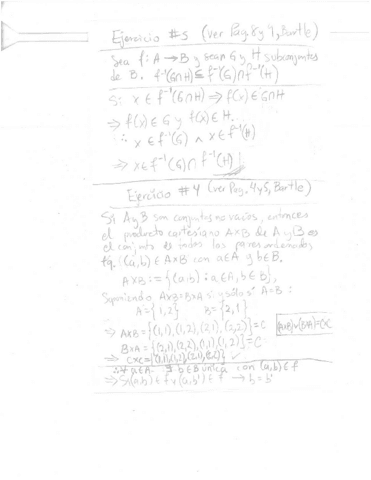 Ejercicio #5 (ver Pag. 8 y 4, Bartle)
Sea f: A → B y sean G y H subconjuntos
de B. f⁻¹(G∩H) ⊆ f⁻¹(G) ∩ f⁻¹(H)
Si x ∈ f⁻¹(G∩H) ⇒ f(x) ∈ G∩H
⇒ f(x) ∈ G y f(x) ∈ H.
∴ x ∈ f⁻¹(G) ∧ x ∈ f⁻¹(H)
⇒ x ∈ f⁻¹(G) ∩ f⁻¹(H)
Ejercicio #4 (ver Pag. 4 y 5, Bartle)
Si A y B son conjuntos no vacios, entonces
el producto cartesiano A×B de A y B es
el conjunto de todos los pares ordenados,
tq. (a,b) ∈ A×B con a∈A y b∈B.
A×B := {(a,b) : a∈A, b∈B},
Suponiendo A×B = B×A si y sólo si A=B :
A={1,2} B={2,1}
⇒ A×B = {(1,1),(1,2),(2,1),(2,2)} = C
B×A = {(2,1),(2,2),(1,1),(1,2)} = C
(A×B)∪(B×A)=C×C
∴ ∀ a∈A ∃ b∈B única con (a,b) ∈ f
⇒ Si (a,b) ∈ f y (a,b') ∈ f → b = b'